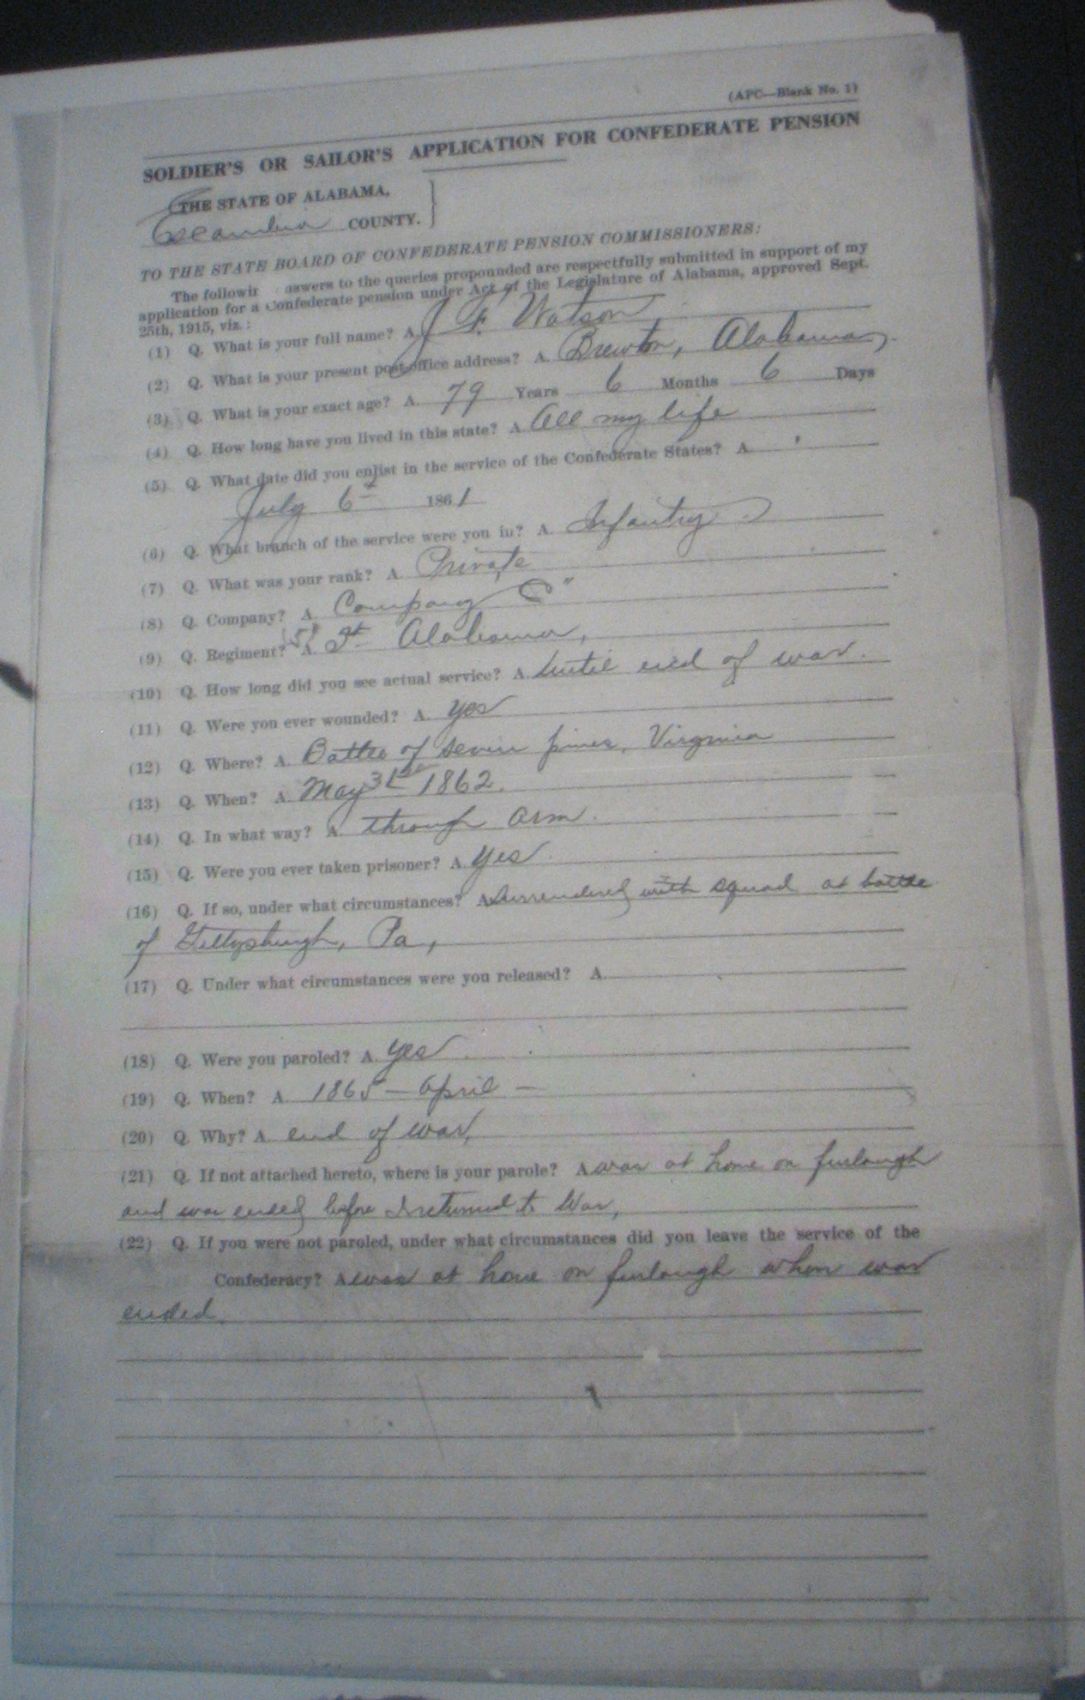 (APC—Blank No. 1)
SOLDIER'S OR SAILOR'S APPLICATION FOR CONFEDERATE PENSION
THE STATE OF ALABAMA,
Escambia COUNTY.
TO THE STATE BOARD OF CONFEDERATE PENSION COMMISSIONERS:
The followir answers to the queries propounded are respectfully submitted in support of my
application for a Confederate pension under Act of the Legislature of Alabama, approved Sept.
25th, 1915, viz.:
(1) Q. What is your full name? A. J. F. Watson
(2) Q. What is your present post-office address? A. Brewton, Alabama.
(3) Q. What is your exact age? A. 79 Years 6 Months 6 Days
(4) Q. How long have you lived in this state? A. All my life
(5) Q. What date did you enlist in the service of the Confederate States? A.
July 6th 1861
(6) Q. What branch of the service were you in? A. Infantry
(7) Q. What was your rank? A. Private
(8) Q. Company? A. Company "C"
(9) Q. Regiment? A. Alabama,
(10) Q. How long did you see actual service? A. Until end of war.
(11) Q. Were you ever wounded? A. Yes
(12) Q. Where? A. Battle of Seven pines, Virginia
(13) Q. When? A. May 31st 1862.
(14) Q. In what way? A. through arm.
(15) Q. Were you ever taken prisoner? A. Yes
(16) Q. If so, under what circumstances? A. Surrendered with squad at battle
of Gettysburgh, Pa,
(17) Q. Under what circumstances were you released? A.
(18) Q. Were you paroled? A. Yes
(19) Q. When? A. 1865 — April —
(20) Q. Why? A. end of war,
(21) Q. If not attached hereto, where is your parole? A. was at home on furlough
and war ended before I returned to War,
(22) Q. If you were not paroled, under what circumstances did you leave the service of the
Confederacy? A. was at home on furlough when war
ended.